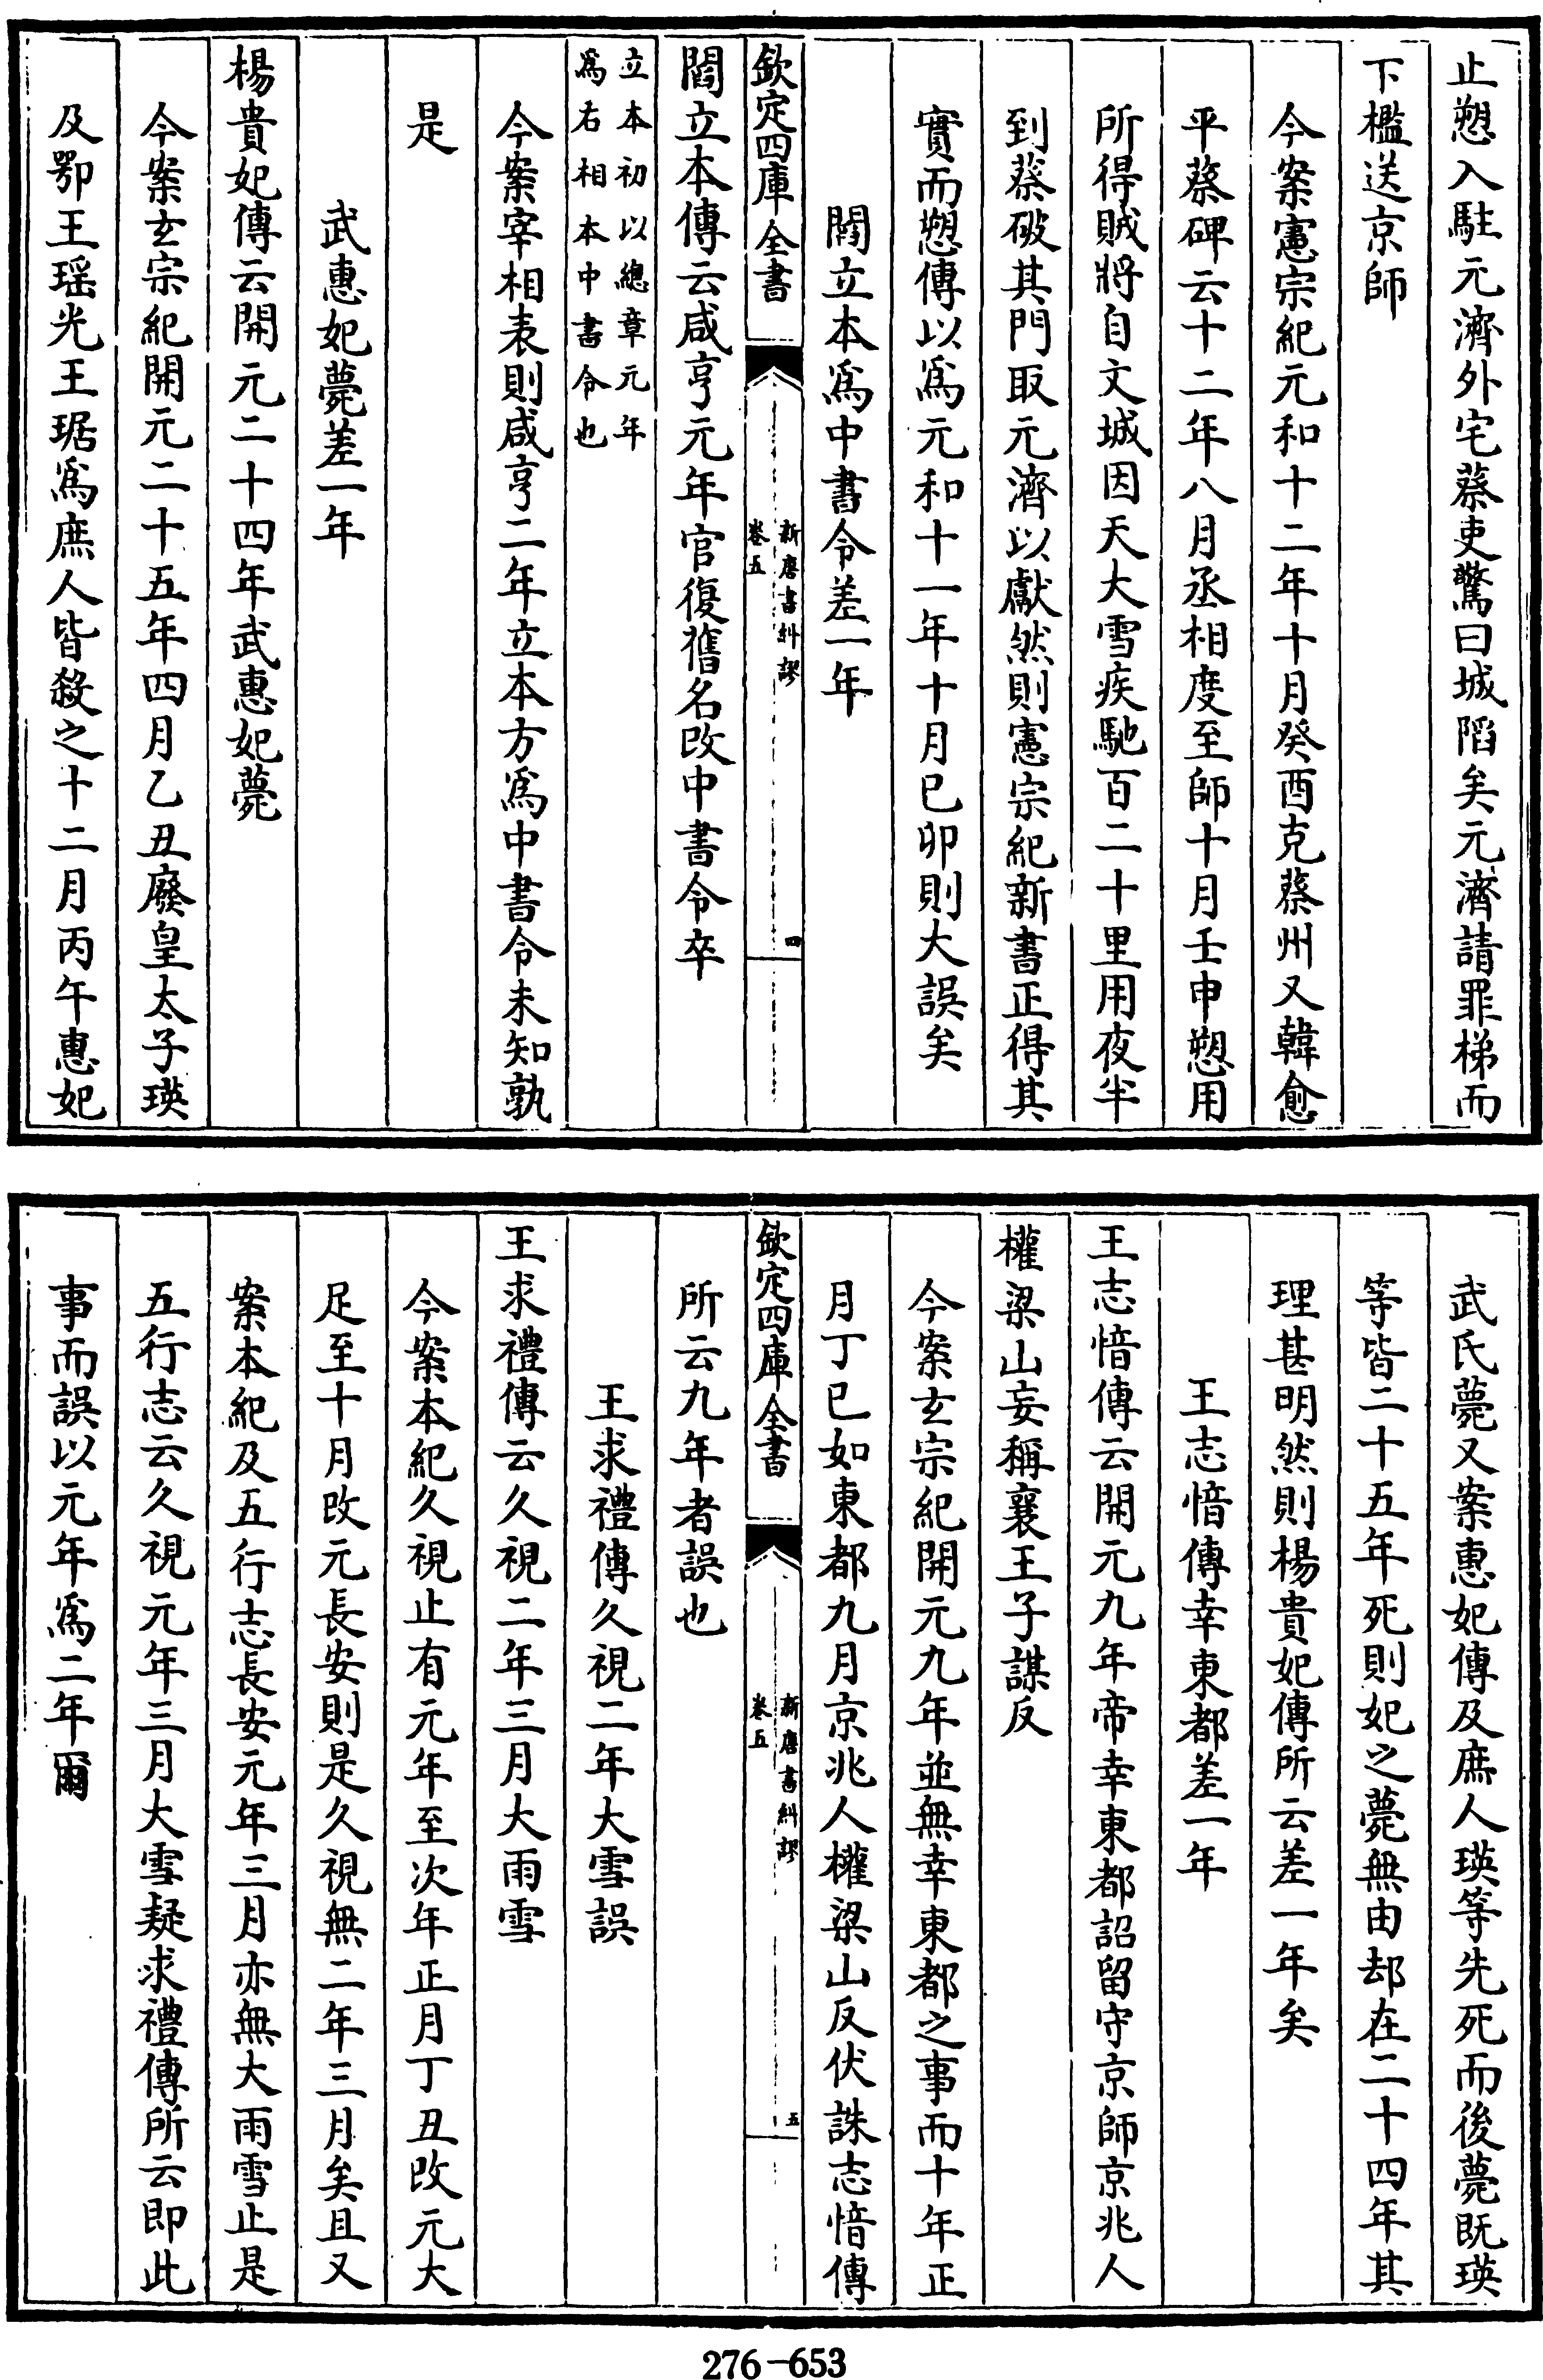 止愬入駐元濟外宅蔡吏驚曰城陷矣元濟請罪梯而
下檻送京師
今案憲宗紀元和十二年十月癸酉克蔡州又韓愈
平蔡碑云十二年八月丞相度至師十月壬申愬用
所得賊將自文城因天大雪疾馳百二十里用夜半
到蔡破其門取元濟以獻然則憲宗紀新書正得其
實而愬傳以為元和十一年十月己卯則大誤矣
閻立本為中書令差一年
欽定四庫全書
新唐書糾謬
卷五
四
閻立本傳云咸亨元年官復舊名改中書令卒
立本初以總章元年
為右相本中書令也
今案宰相表則咸亨二年立本方為中書令未知孰
是
武惠妃薨差一年
楊貴妃傳云開元二十四年武惠妃薨
今案玄宗紀開元二十五年四月乙丑廢皇太子瑛
及鄂王瑶光王琚為庶人皆殺之十二月丙午惠妃
武氏薨又案惠妃傳及庶人瑛等先死而後薨既瑛
等皆二十五年死則妃之薨無由却在二十四年其
理甚明然則楊貴妃傳所云差一年矣
王志愔傳幸東都差一年
王志愔傳云開元九年帝幸東都詔留守京師京兆人
權梁山妄稱襄王子謀反
今案玄宗紀開元九年並無幸東都之事而十年正
月丁巳如東都九月京兆人權梁山反伏誅志愔傳
欽定四庫全書
新唐書糾謬
卷五
五
所云九年者誤也
王求禮傳久視二年大雪誤
王求禮傳云久視二年三月大雨雪
今案本紀久視止有元年至次年正月丁丑改元大
足至十月改元長安則是久視無二年三月矣且又
案本紀及五行志長安元年三月亦無大雨雪止是
五行志云久視元年三月大雪疑求禮傳所云即此
事而誤以元年為二年爾
276-653